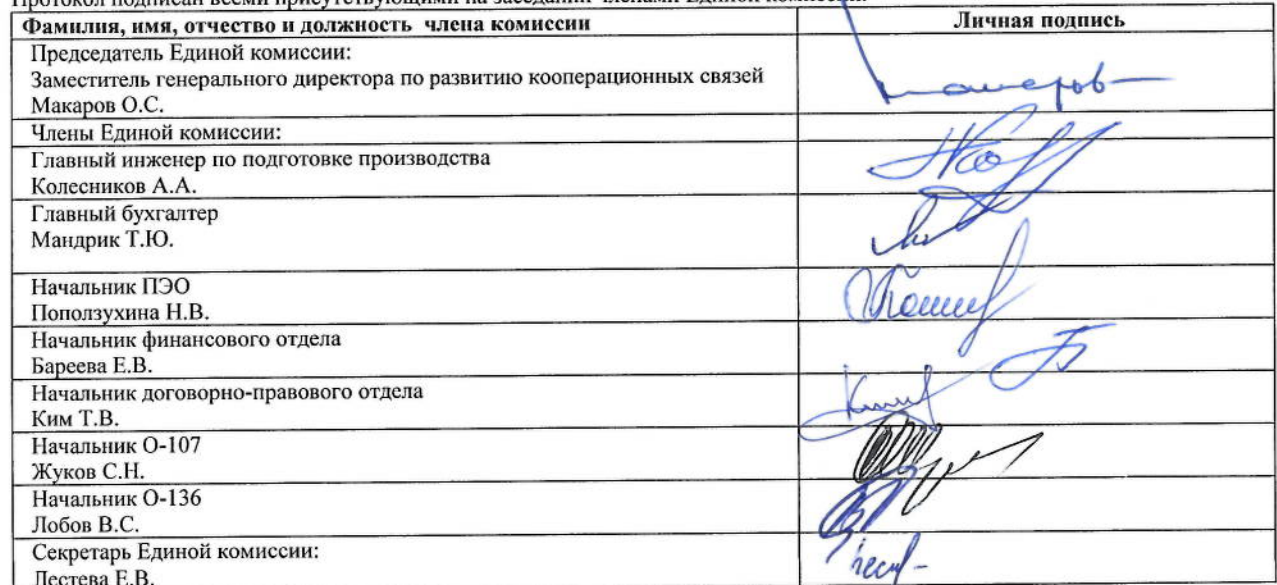 Протокол подписан всеми присутствующими на заседании членами Единой комиссии.
Фамилия, имя, отчество и должность члена комиссии
Личная подпись
Председатель Единой комиссии:
Заместитель генерального директора по развитию кооперационных связей
Макаров О.С.
Члены Единой комиссии:
Главный инженер по подготовке производства
Колесников А.А.
Главный бухгалтер
Мандрик Т.Ю.
Начальник ПЭО
Поползухина Н.В.
Начальник финансового отдела
Бареева Е.В.
Начальник договорно-правового отдела
Ким Т.В.
Начальник О-107
Жуков С.Н.
Начальник О-136
Лобов В.С.
Секретарь Единой комиссии:
Лестева Е.В.